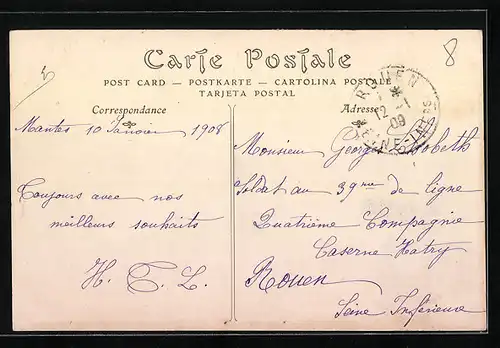 8
Carte Postale
POST CARD — POSTKARTE — CARTOLINA POSTALE
TARJETA POSTAL
Correspondance
Adresse
ROUEN
12 - 1
09
Mantes 10 Janvier 1908
Toujours avec nos
meilleurs souhaits
H. T. L.
Monsieur Georges
Soldat au 39me de ligne
Quatrième Compagnie
Caserne Hatry
Rouen
Seine Inférieure